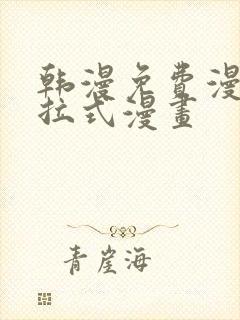 韩漫免费漫
拉式漫畫
青崖海